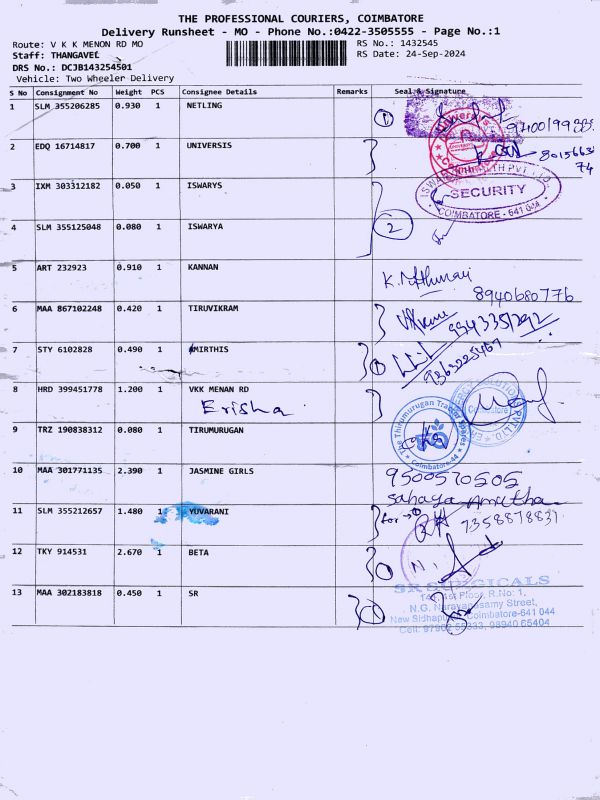 THE PROFESSIONAL COURIERS, COIMBATORE
Delivery Runsheet - MO - Phone No.:0422-3505555 - Page No.:1
Route: V K K MENON RD MO
RS No.: 1432545
Staff: THANGAVEL
RS Date: 24-Sep-2024
DRS No.: DCJB143254501
Vehicle: Two Wheeler Delivery
S No Consignment No Weight PCS Consignee Details Remarks Seal & Signature
1 SLM 355206285 0.930 1 NETLING
2 EDQ 16714817 0.700 1 UNIVERSIS
3 IXM 303312182 0.050 1 ISWARYS
SECURITY
COIMBATORE - 641 004
4 SLM 355125048 0.080 1 ISWARYA
2
5 ART 232923 0.910 1 KANNAN
8940680776
6 MAA 867102248 0.420 1 TIRUVIKRAM
7 STY 6102828 0.490 1 AMIRTHIS
9363225467
8 HRD 399451778 1.200 1 VKK MENAN RD
Erisha
9 TRZ 190838312 0.080 1 TIRUMURUGAN
The Thirumurugan Tractor Spares
Coimbatore-44
10 MAA 301771135 2.390 1 JASMINE GIRLS
9500570505
11 SLM 355212657 1.480 1 YUVARANI
for
7358878837
12 TKY 914531 2.670 1 BETA
13 MAA 302183818 0.450 1 SR
SR SURGICALS
1st Floor, R.No: 1,
N.G. Narayanasamy Street,
New Sidhapudur, Coimbatore-641 044
98940 65404